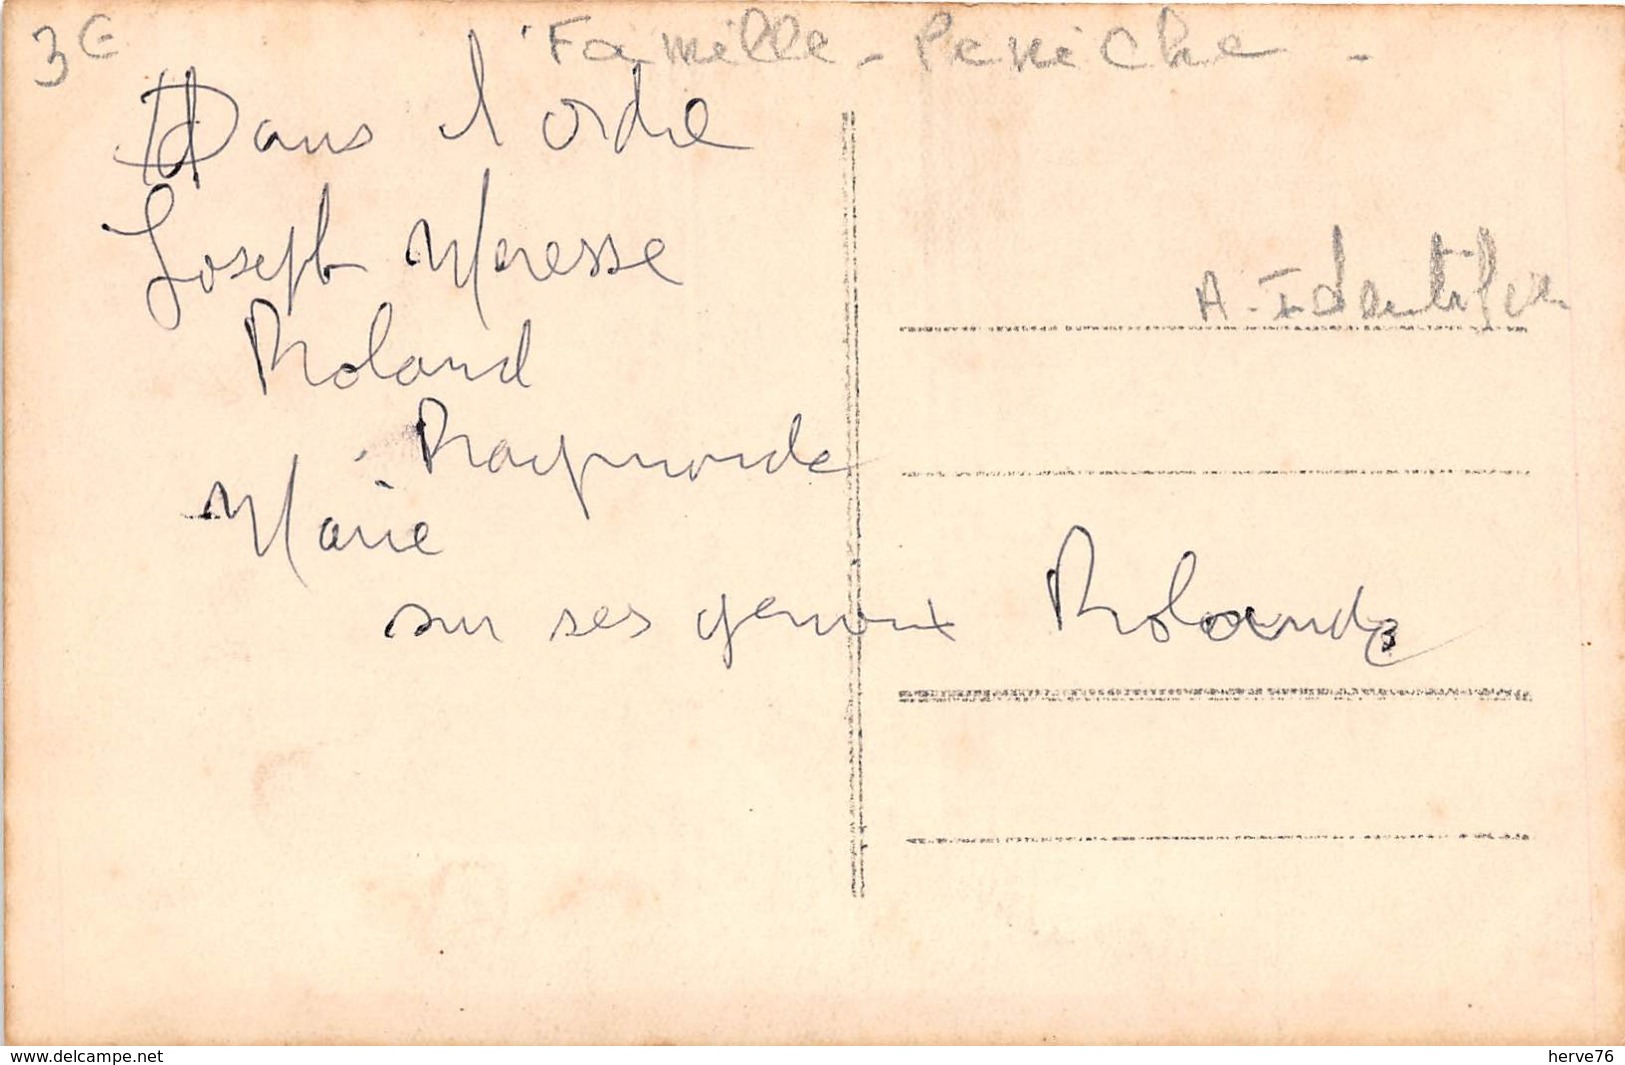 3€ Famille - Peniche -
Dans l'ordre
Joseph Meresse
A - Identifier
Roland
Raymonde
Marie
sur ses genoux Rolande
www.delcampe.net
herve76